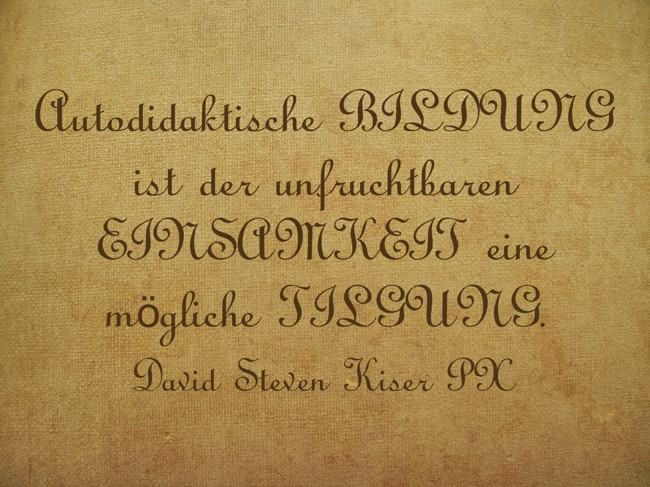 Autodidaktische BILDUNG
ist der unfruchtbaren
EINSAMKEIT eine
mögliche TILGUNG.
David Steven Kiser PX